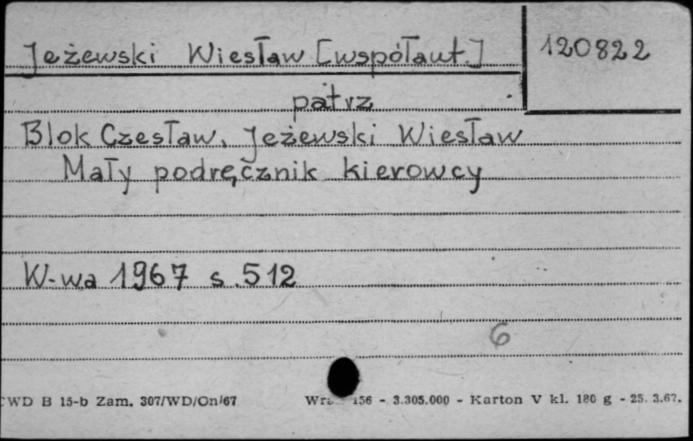 Jeżewski Wiesław [współaut.]
120822
patrz
Blok Czesław, Jeżewski Wiesław
Mały podręcznik kierowcy
W-wa 1967 s. 512
6
CWD B 15-b Zam. 307/WD/On/67
156 - 3.305.000 - Karton V kl. 180 g - 25. 3.67.